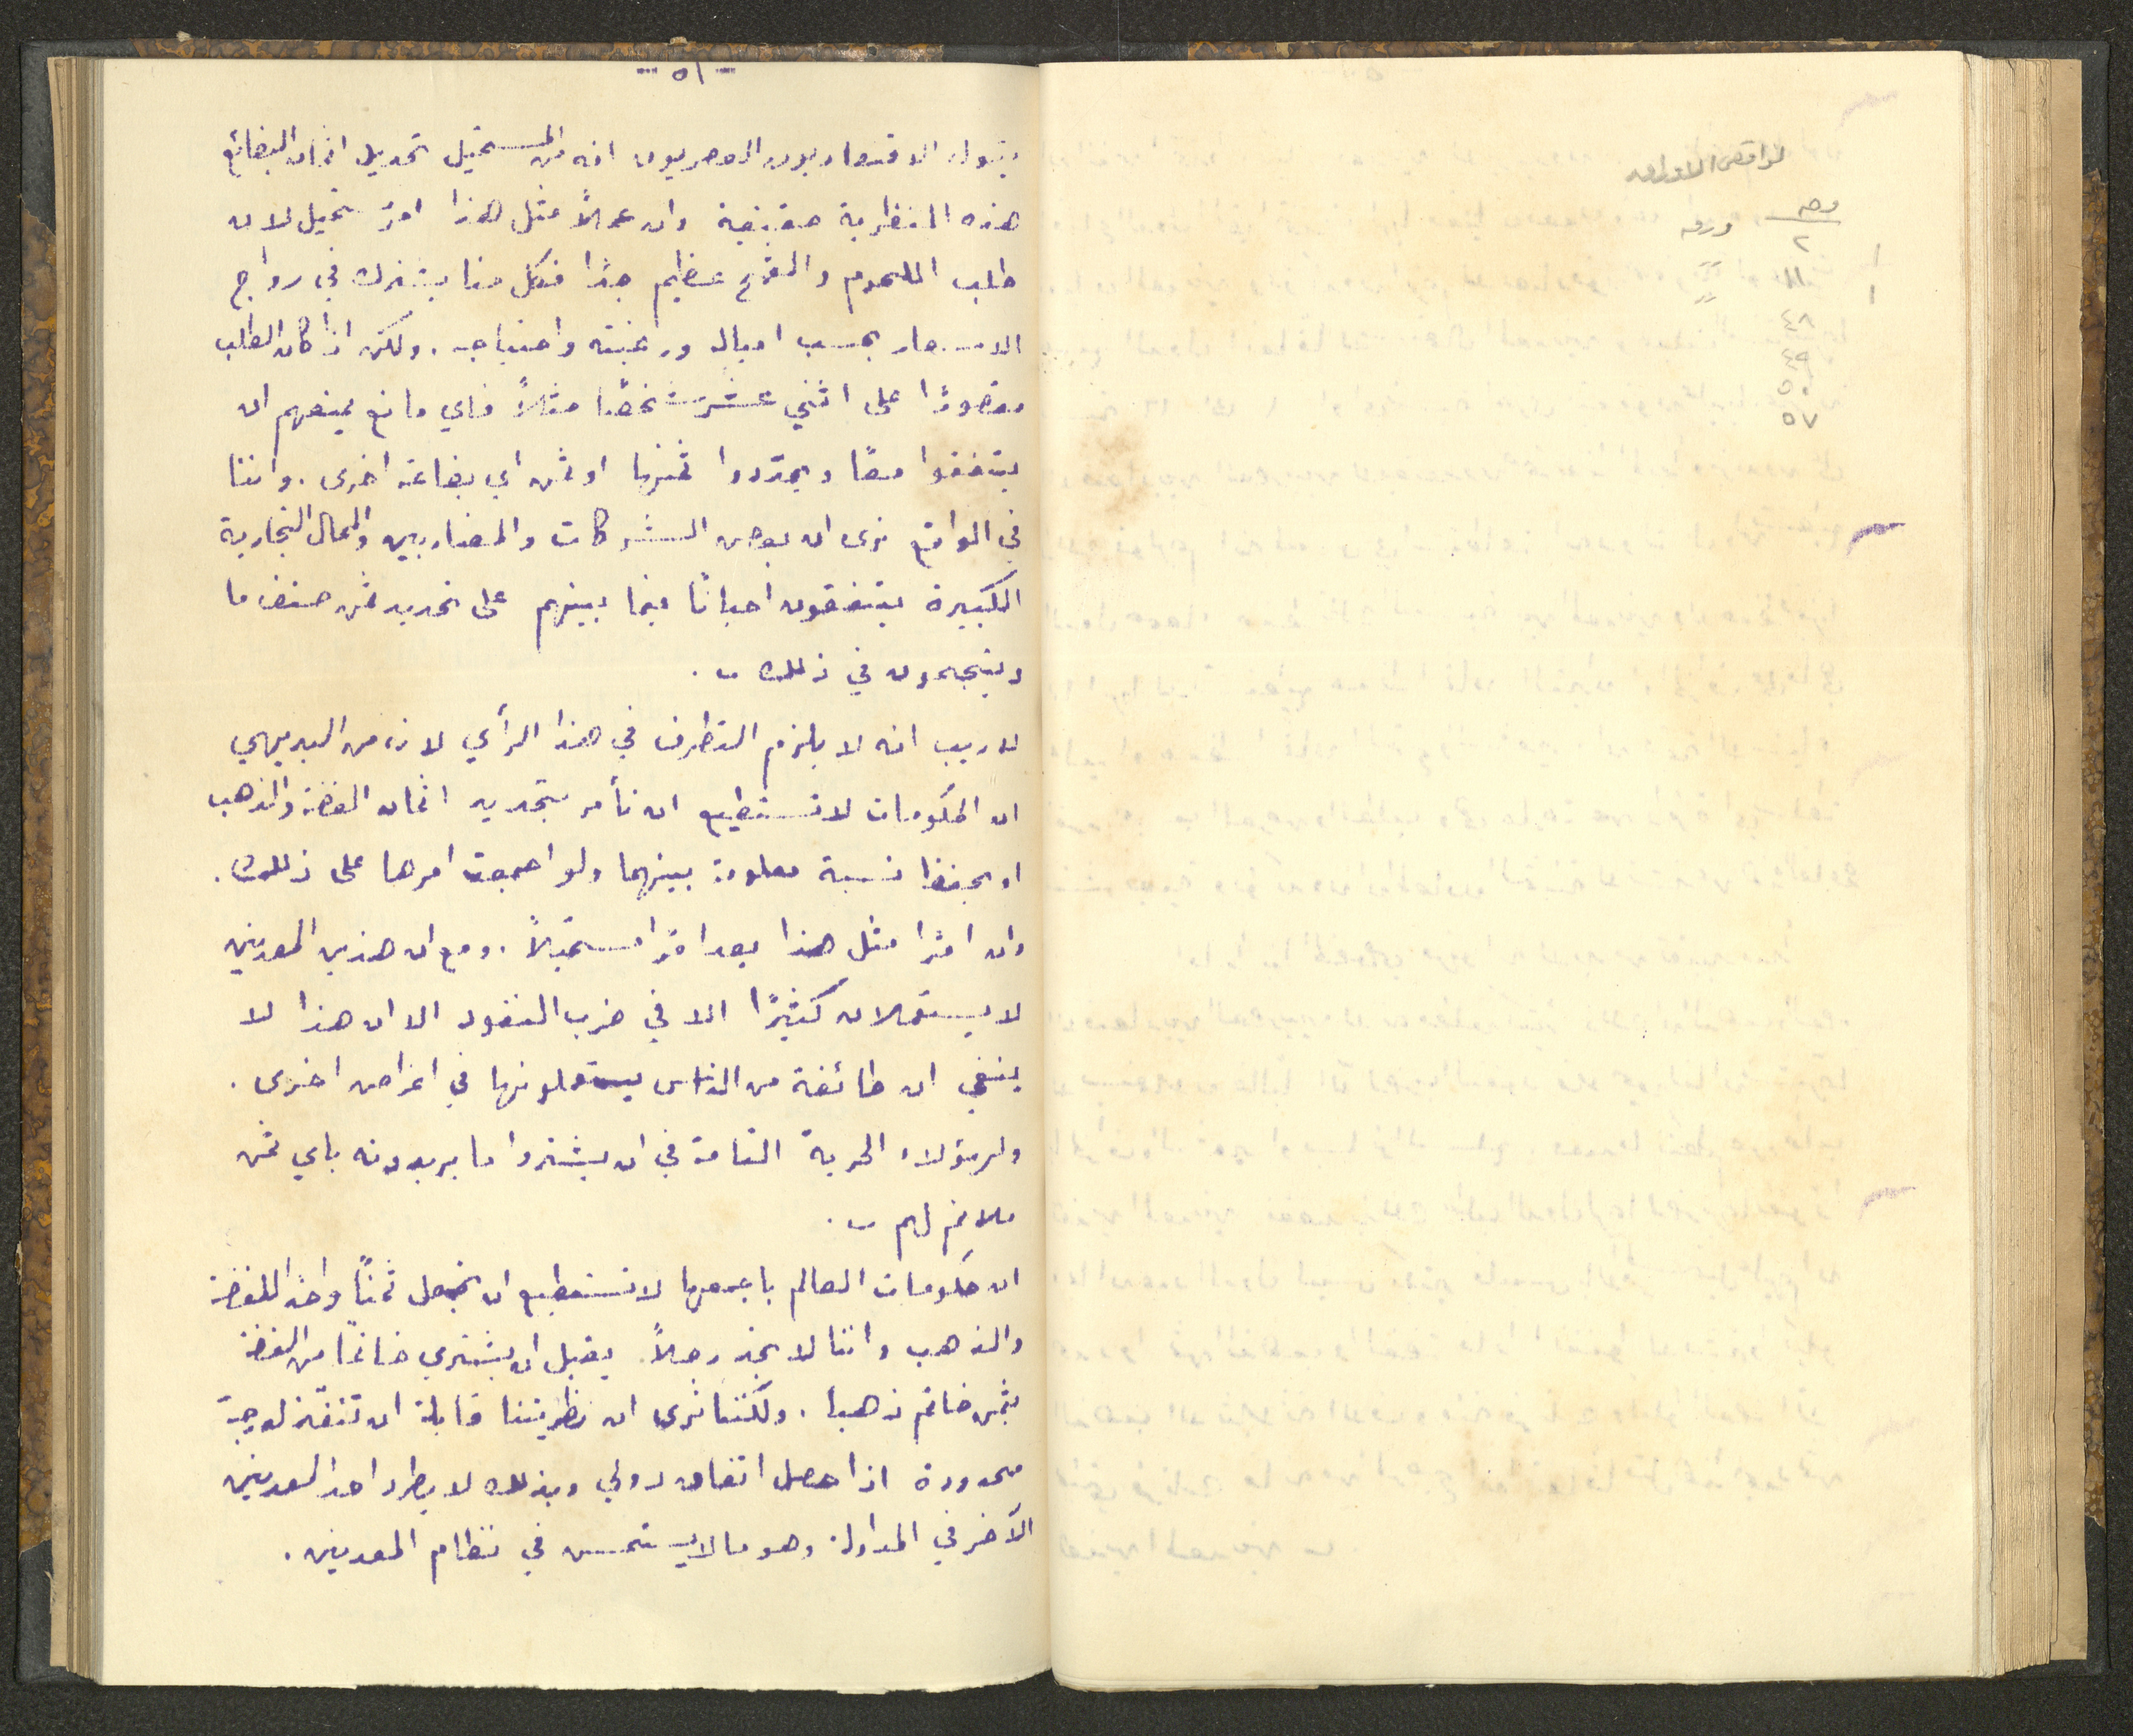 وجه
٢ ورقه
١١ "
٤٨
٤٩
٥٠
٥٧
— ٥١ —
يقول الاقتصاديون العصريون انه من المستحيل تحديد اثمان البضائع
هذه النظرية حقيقية وان عملاً مثل هذا امرٌ مستحيل لان
طلب اللحوم والقمح عظيم جدًا فكل منا يشترك في رواج
الاسعار بحسب امياله ورغبته واحتياجه. ولكن اذا كان الطلب
مقصورًا على اثني عشر شخصًا مثلاً فاي مانع يمنعهم ان
يتفقوا معًا ويحددوا ثمنها او ثمن اي بضاعة اخرى. واننا
في الواقع نرى ان بعض الشركات والمضاربين والمحال التجارية
الكبيرة يتفقون احيانًا فيما بينهم على تحديد ثمن صنف ما
وينجحون في ذلك.
لا ريب انه لا يلزم التطرف في هذا الرأي لان من البديهي
ان الحكومات لا تستطيع ان تأمر بتحديد اثمان الفضة والذهب
او بحفظ نسبة معلومة بينهما ولو اجمعت امرها على ذلك.
وان امرًا مثل هذا يعد امرًا مستحيلاً. ومع ان هذين المعدنين
لا يستعملان كثيرًا الا في ضرب النقود الا ان هذا لا
ينفي ان طائفة من الناس يستعملونها في اغراض اخرى.
ولهؤلاء الحرية التامة في ان يشتروا ما يريدونه باي ثمن
ملائم لهم.
ان حكومات العالم باجمعها لا تستطيع ان تجعل ثمنًا واحدًا للفضة
والذهب واننا لا نجد رجلاً يقبل ان يشتري خاتمًا من الفضة
بثمن خاتم ذهبًا. ولكننا نرى ان نظريتنا قابلة ان تنفذ لدرجة
محدودة اذا حصل اتفاق دولي وبذلك لا يطرد احد المعدنين
الآخر في المداولة وهو ما لا يستحسن في نظام المعدنين.